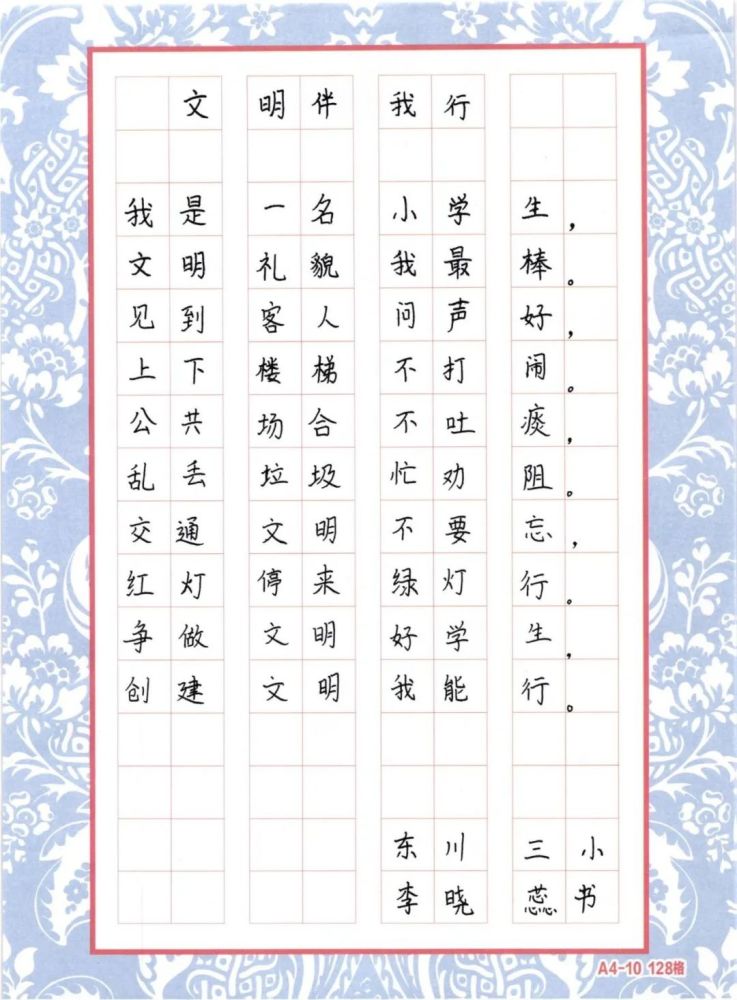 文明伴我行
我是一名小学生，
文明礼貌我最棒。
见到客人问声好，
上下楼梯不打闹。
公共场合不吐痰，
乱丢垃圾忙劝阻。
交通文明不要忘，
红灯停来绿灯行。
争做文明好学生，
创建文明我能行。
东川三小
李晓蕊书
A4-10 128格